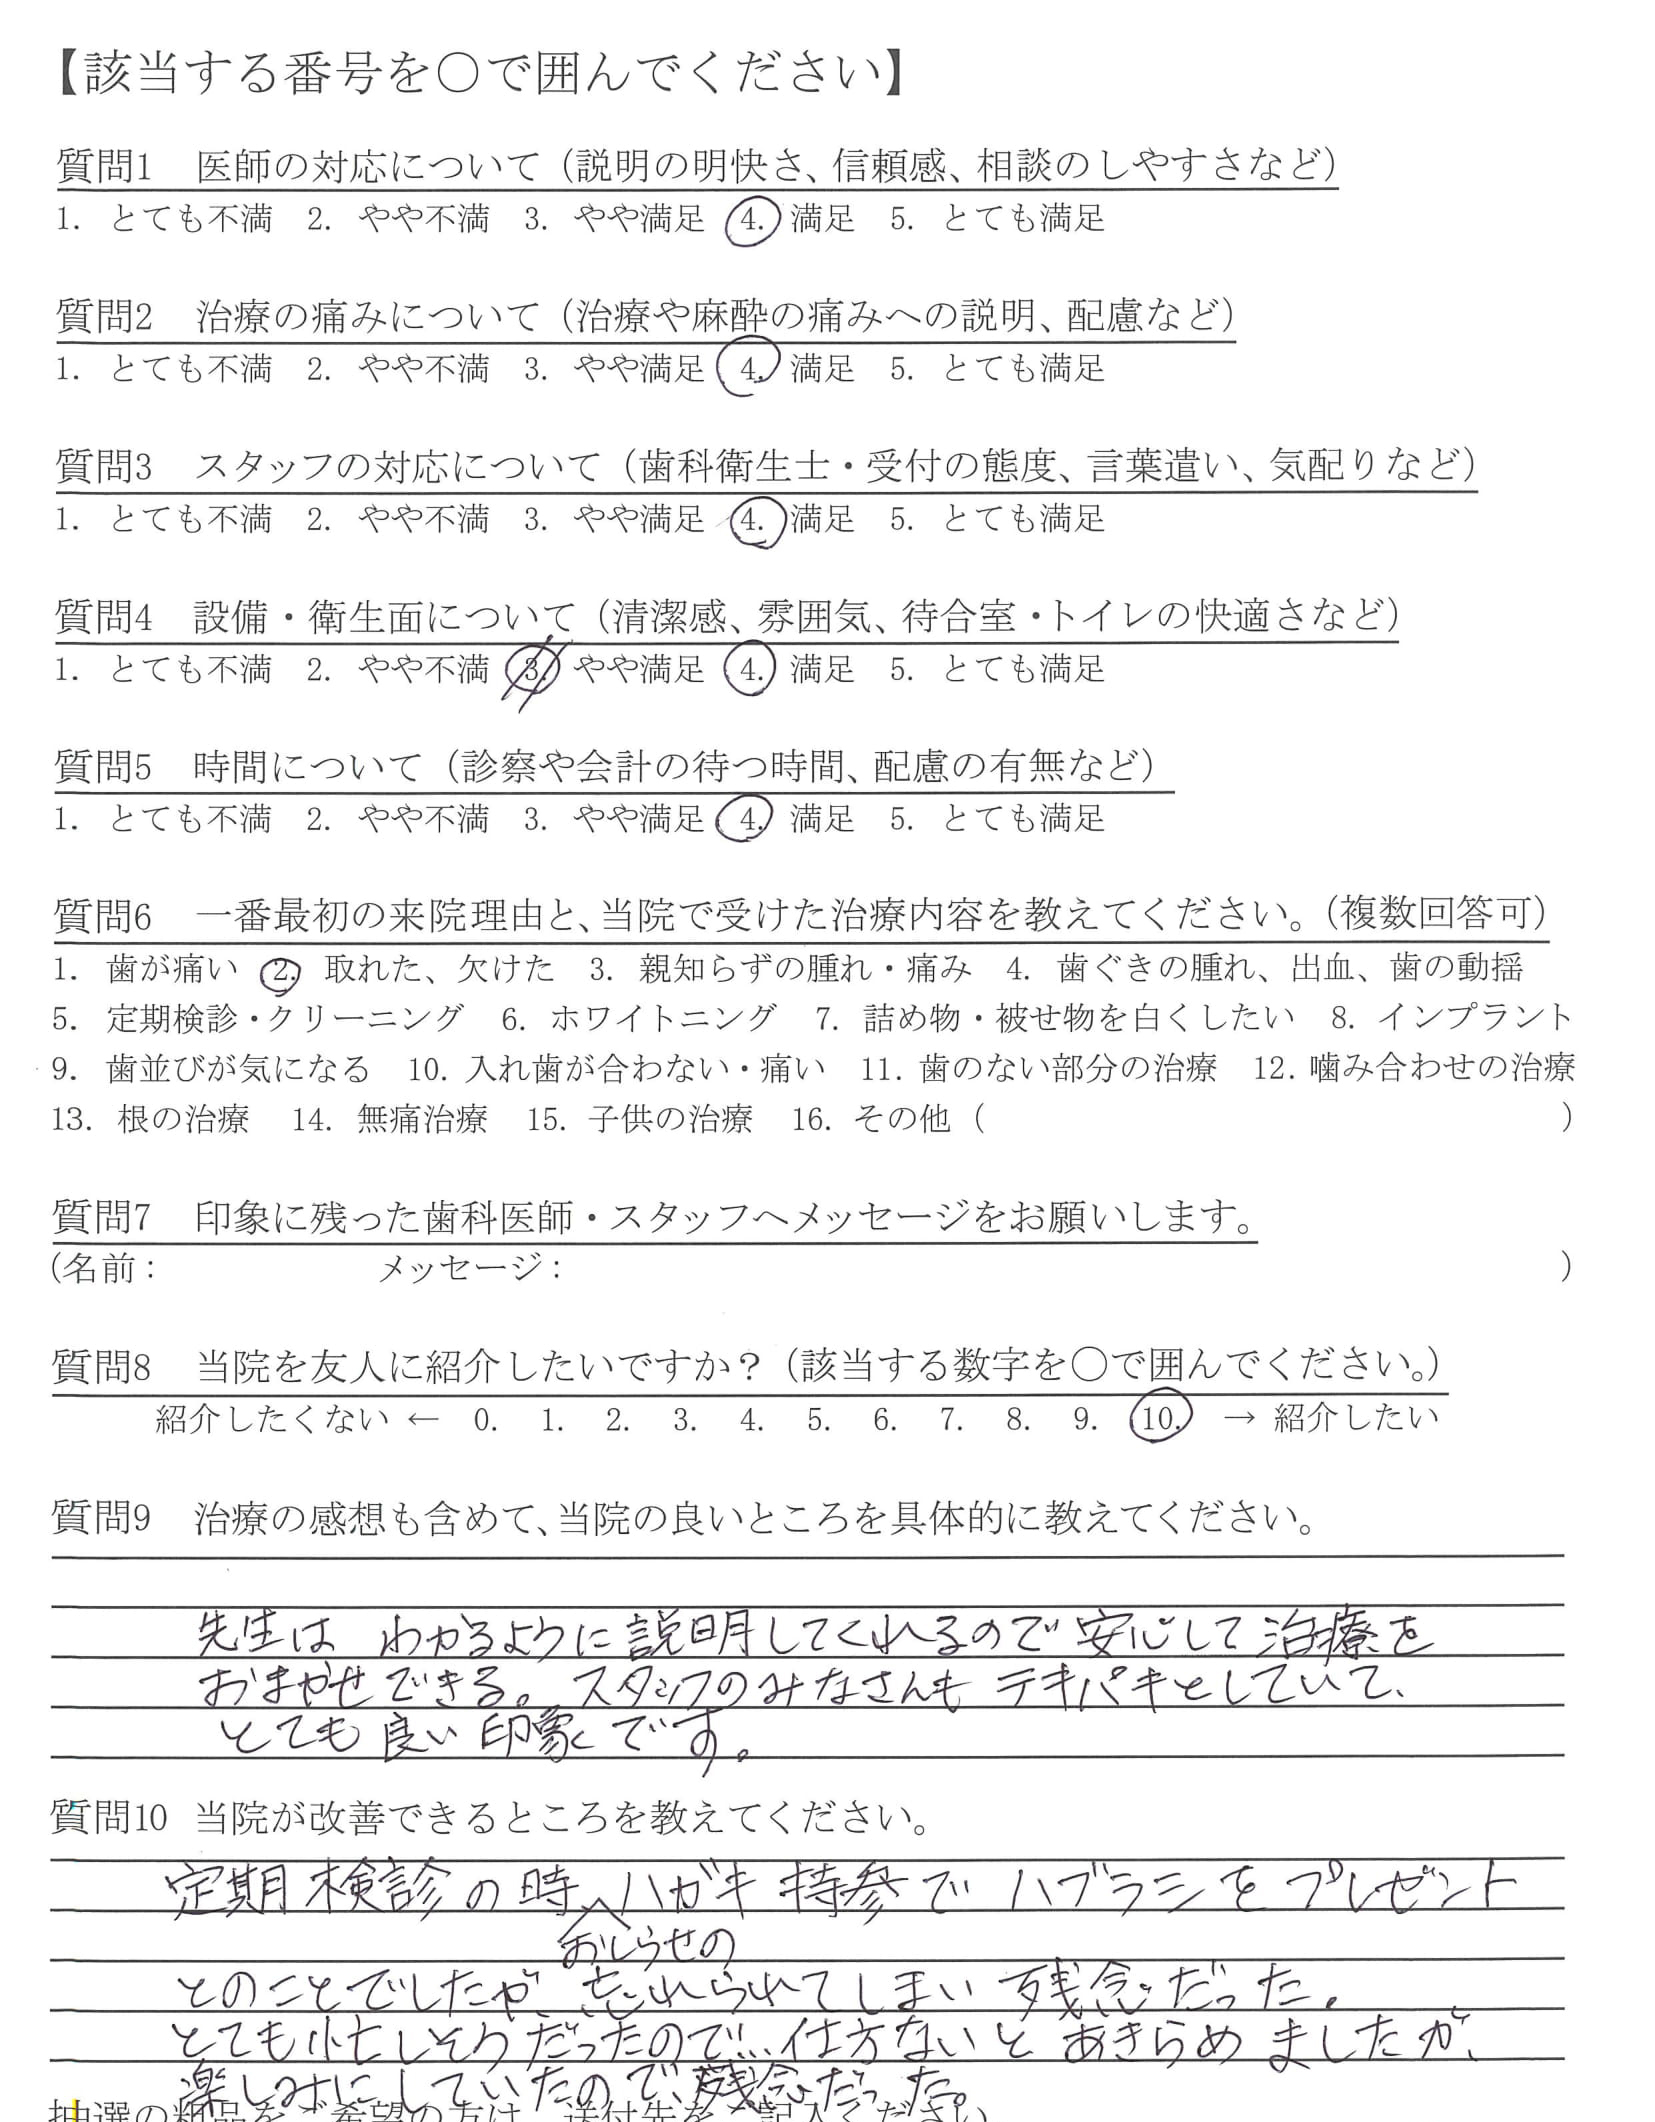 【該当する番号を○で囲んでください】
質問1 医師の対応について（説明の明快さ、信頼感、相談のしやすさなど）
1. とても不満 2. やや不満 3. やや満足 4. 満足 5. とても満足
質問2 治療の痛みについて（治療や麻酔の痛みへの説明、配慮など）
1. とても不満 2. やや不満 3. やや満足 4. 満足 5. とても満足
質問3 スタッフの対応について（歯科衛生士・受付の態度、言葉遣い、気配りなど）
1. とても不満 2. やや不満 3. やや満足 4. 満足 5. とても満足
質問4 設備・衛生面について（清潔感、雰囲気、待合室・トイレの快適さなど）
1. とても不満 2. やや不満 3. やや満足 4. 満足 5. とても満足
質問5 時間について（診察や会計の待つ時間、配慮の有無など）
1. とても不満 2. やや不満 3. やや満足 4. 満足 5. とても満足
質問6 一番最初の来院理由と、当院で受けた治療内容を教えてください。（複数回答可）
1. 歯が痛い 2. 取れた、欠けた 3. 親知らずの腫れ・痛み 4. 歯ぐきの腫れ、出血、歯の動揺
5. 定期検診・クリーニング 6. ホワイトニング 7. 詰め物・被せ物を白くしたい 8. インプラント
9. 歯並びが気になる 10. 入れ歯が合わない・痛い 11. 歯のない部分の治療 12. 噛み合わせの治療
13. 根の治療 14. 無痛治療 15. 子供の治療 16. その他（ ）
質問7 印象に残った歯科医師・スタッフへメッセージをお願いします。
（名前： メッセージ： ）
質問8 当院を友人に紹介したいですか？（該当する数字を○で囲んでください。）
紹介したくない ← 0. 1. 2. 3. 4. 5. 6. 7. 8. 9. 10. → 紹介したい
質問9 治療の感想も含めて、当院の良いところを具体的に教えてください。
先生は わかるように説明してくれるので安心して治療を
おまかせできる。スタッフのみなさんも テキパキとしていて、
とても良い印象です。
質問10 当院が改善できるところを教えてください。
定期検診の時、ハガキ持参で ハブラシをプレゼント
おしらせの
とのことでしたが、忘れられてしまい 残念だった。
とても忙しそうだったので…仕方ないと あきらめましたが、
楽しみにしていたので、残念だった。
抽選の粗品をご希望の方は、送付先をご記入ください